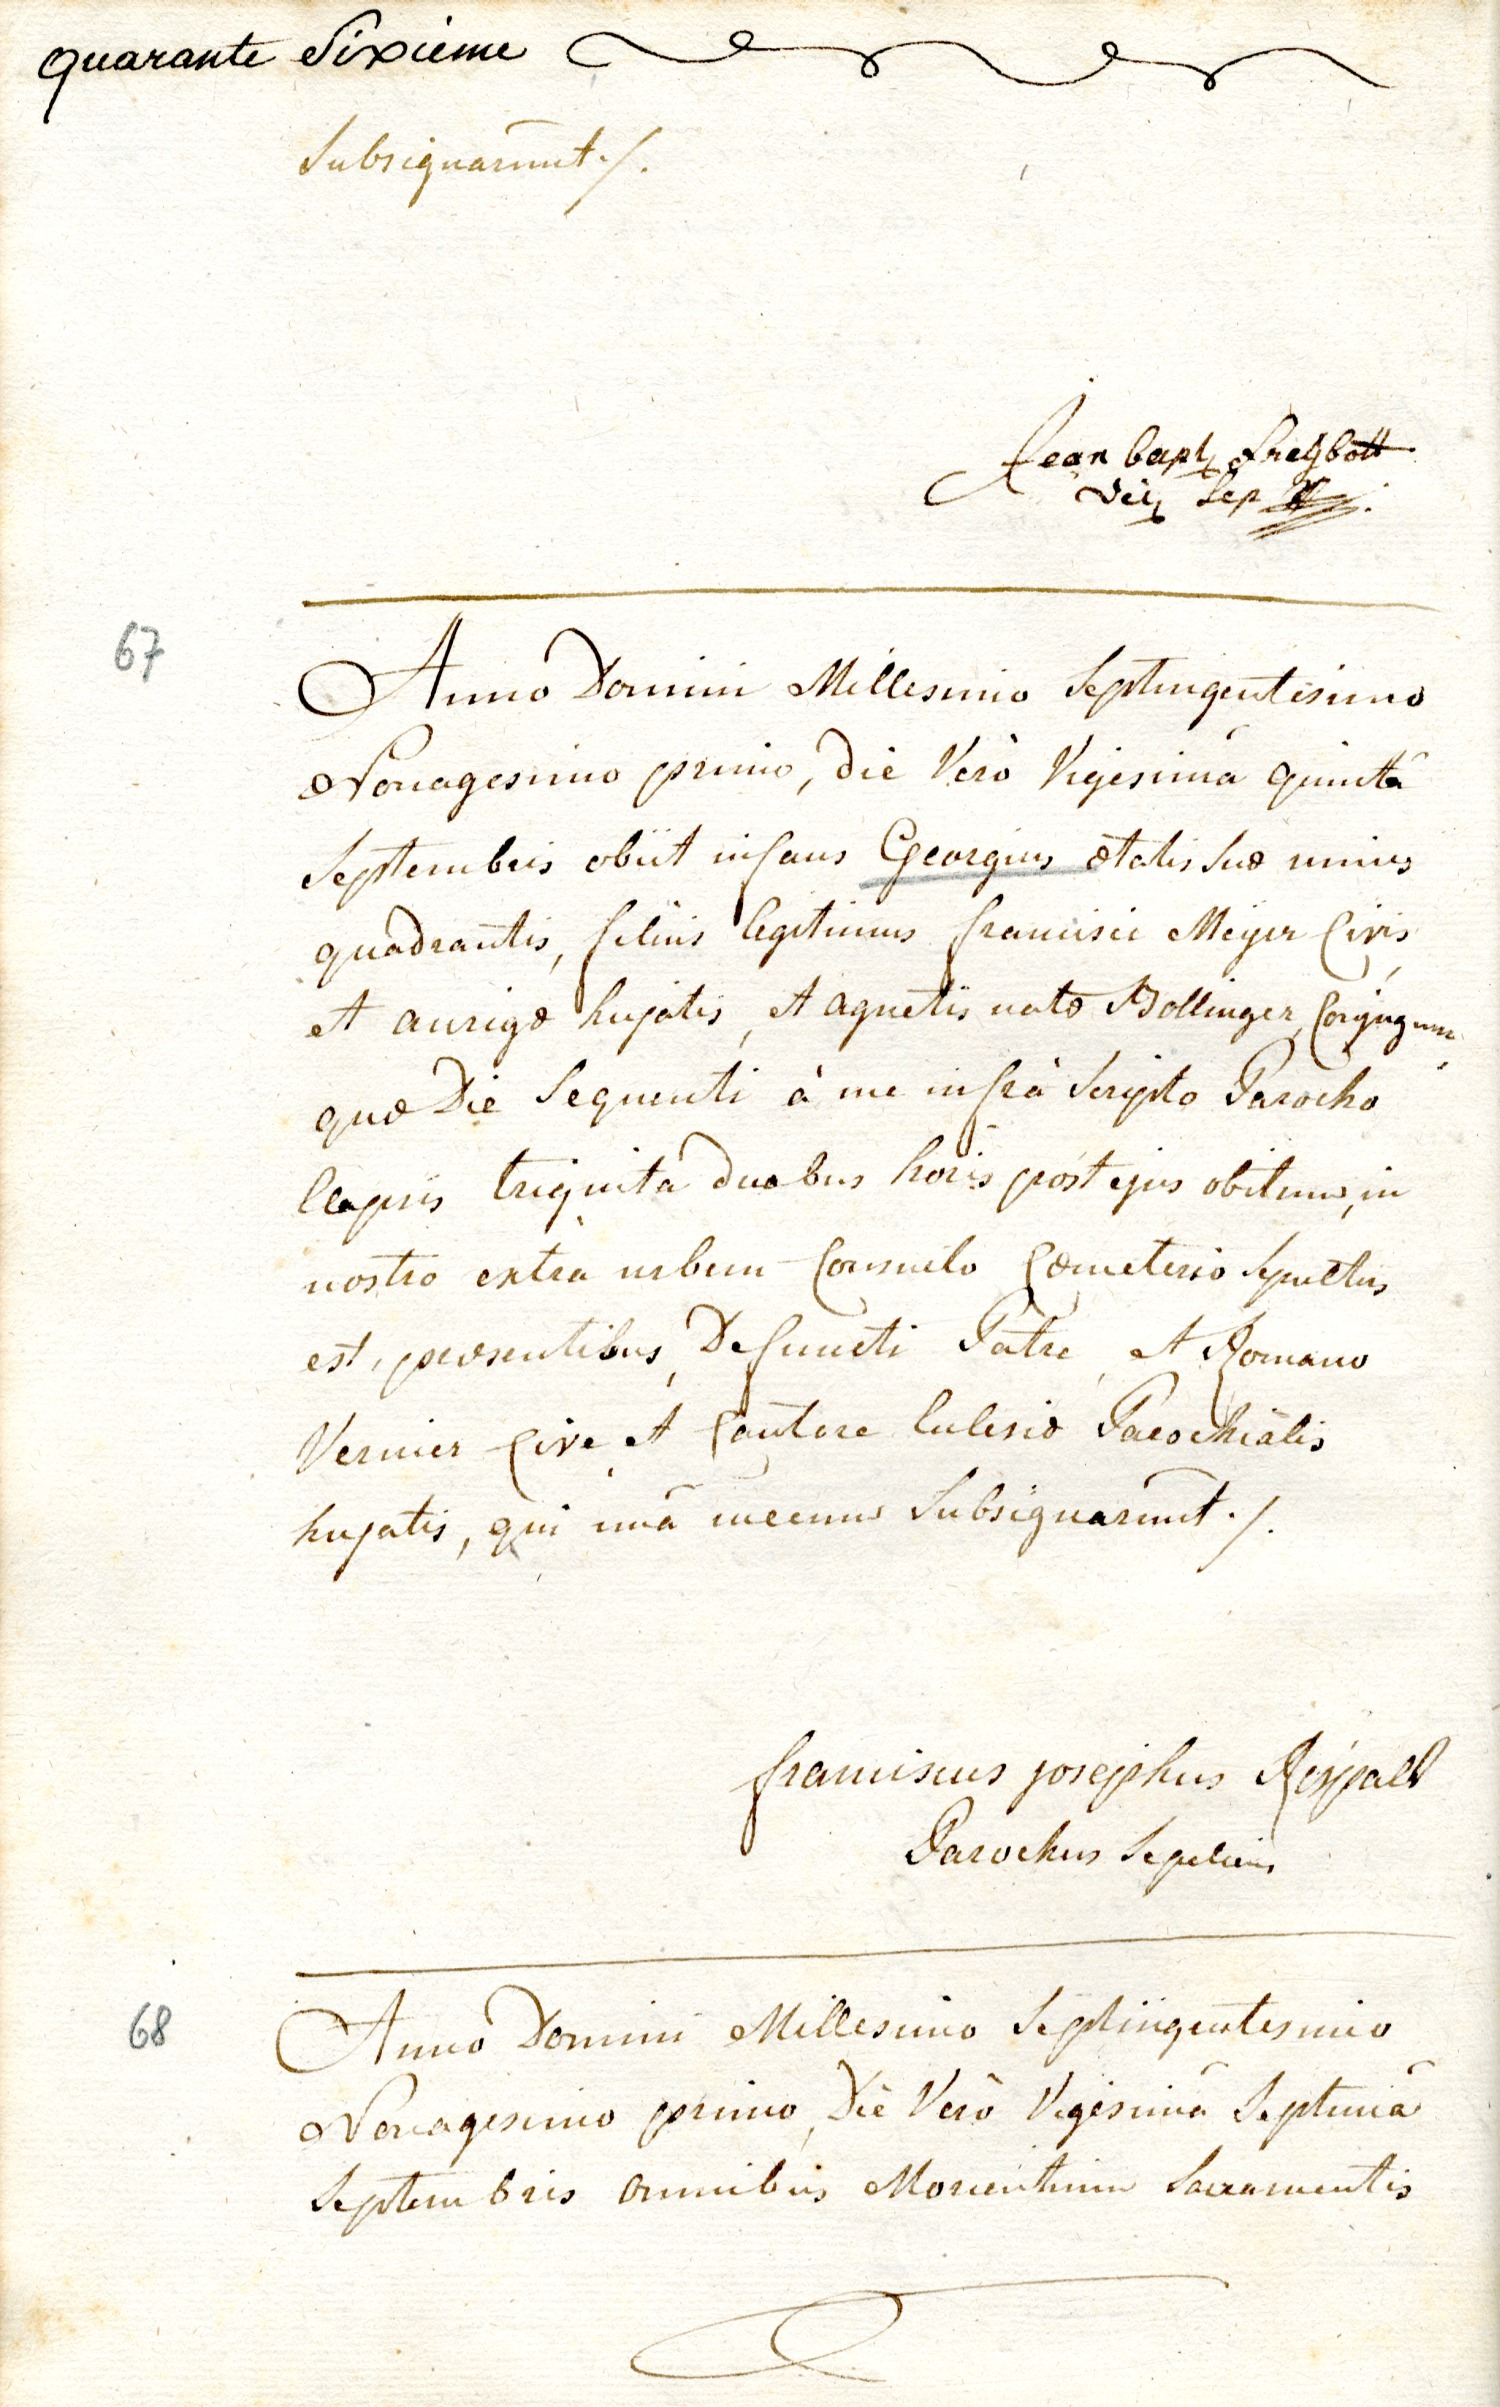 quarante Sixieme
Subsignarunt ./.
Jean bapt freÿbott
Vic Sep
67
Anno Domini Millesimo Septingentesimo
Nonagesimo primo, die Verò Vigesimâ quintâ
Septembris obiit infans Georgius ætatis suæ unius
quadrantis, filius legitimus francisci Meÿer Civis
et aurigæ hujatis, et agnetis natæ Bollinger, Conjugum
quæ Die Sequenti à me infrà Scripto Parocho
Elapsis triginta duobus horis post ejus obitum, in
nostro extra urbem Consueto Cœmeterio Sepultus
est, præsentibus, Defuncti Patre, et Romano
Vernier Cive et Cantore Eclesiæ Parochialis
hujatis, qui unâ mecum Subsignarunt ./.
franciscus josephus
Parochus Sepeliens
68
Anno Domini Millesimo Septingentesimo
Nonagesimo primo, Die Verò Vigesimâ Septimâ
Septembris omnibus Morientium Sacramentis